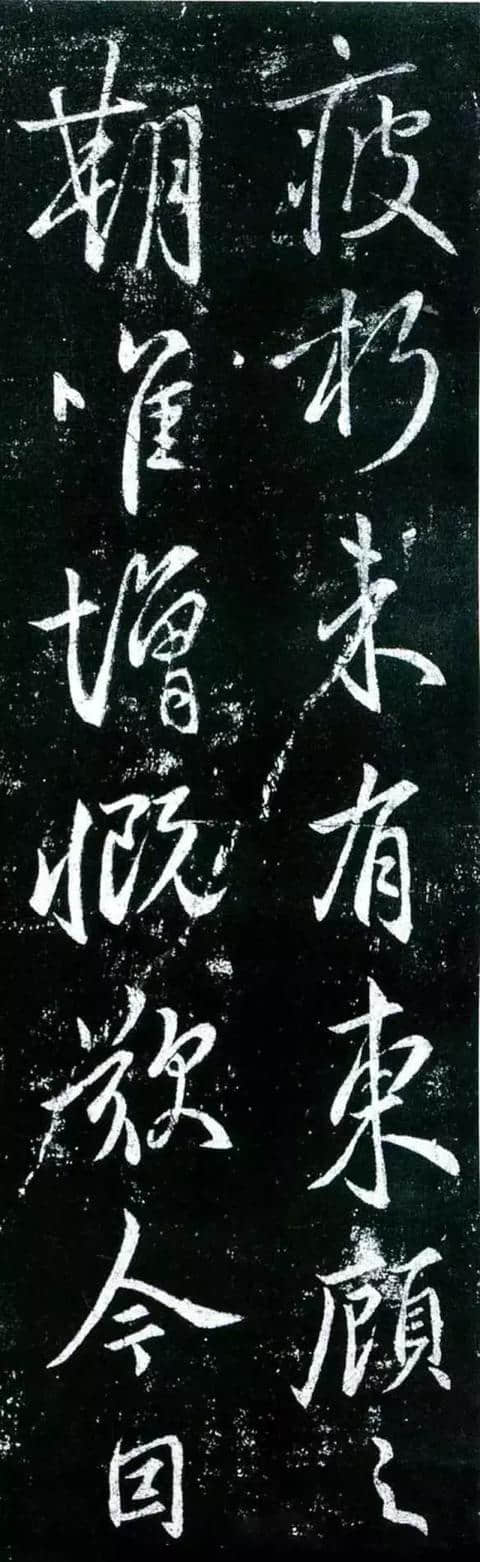 疲朽未有東顧之
期唯增慨歎今因